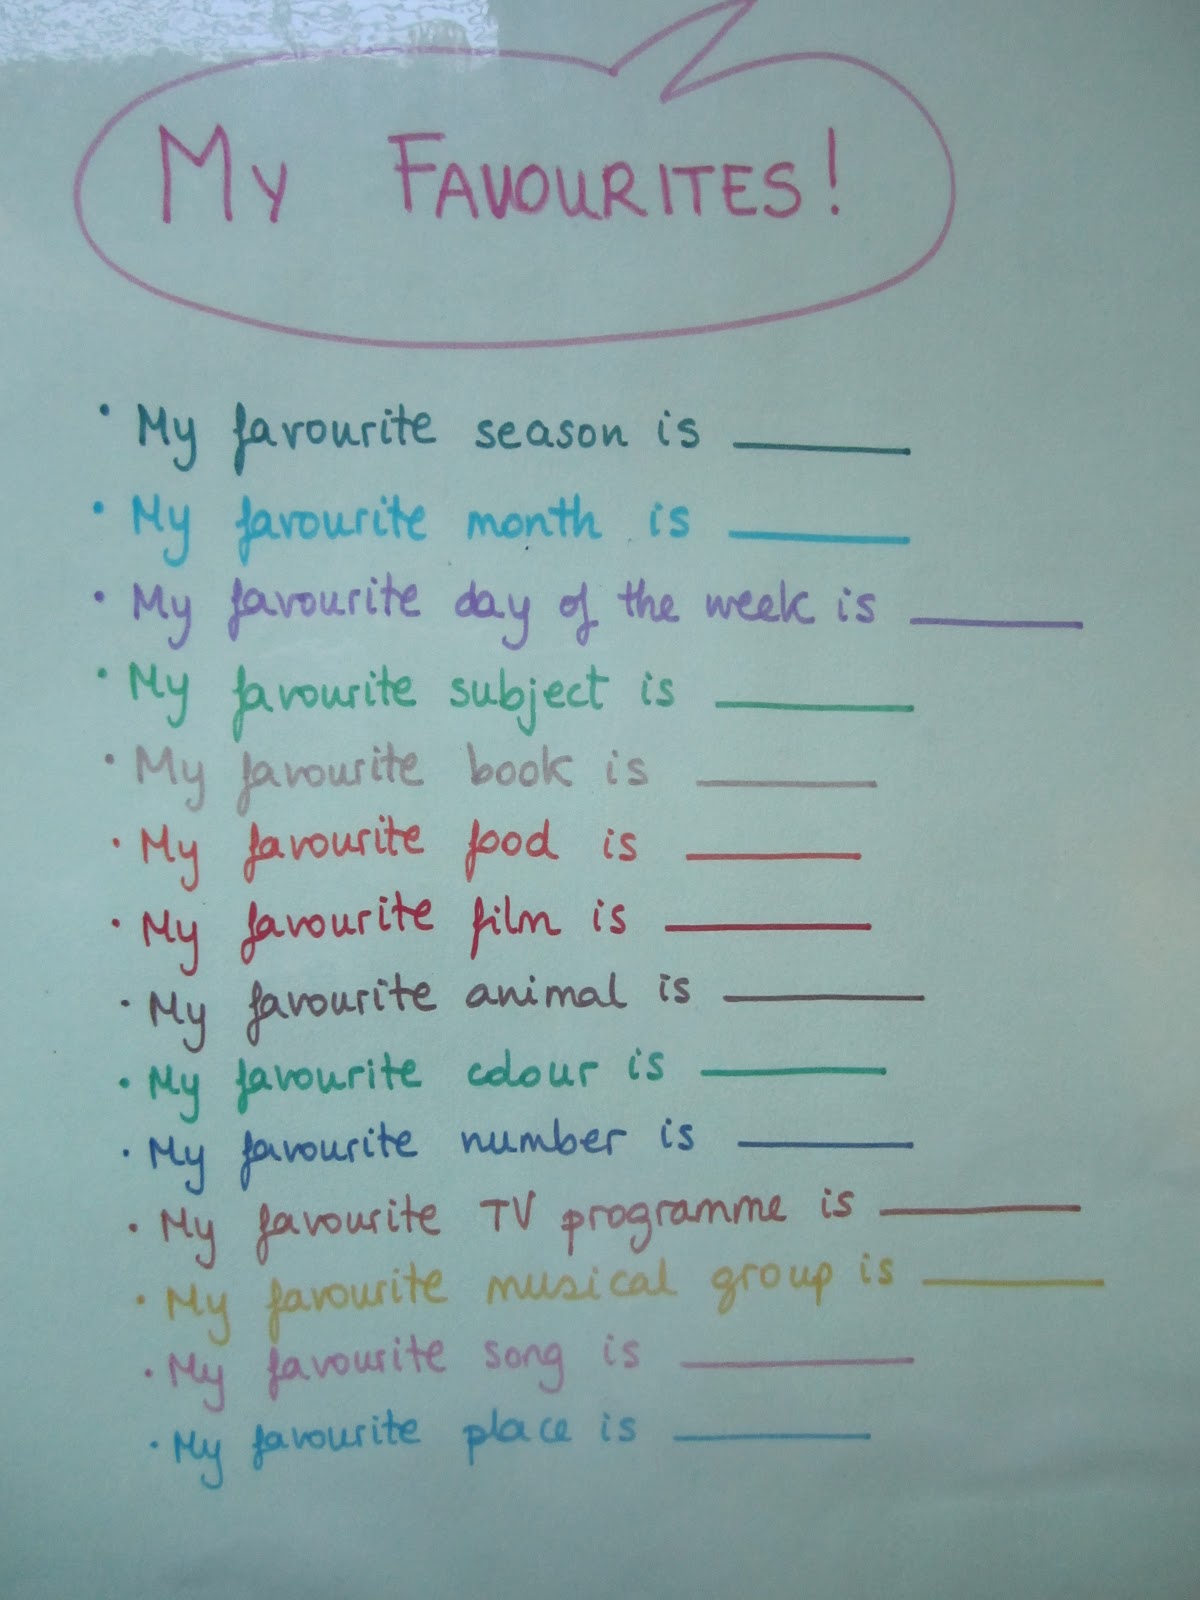 My FAVOURITES!
• My favourite season is ______
• My favourite month is ______
• My favourite day of the week is ______
• My favourite subject is ______
• My favourite book is ______
• My favourite food is ______
• My favourite film is ______
• My favourite animal is ______
• My favourite colour is ______
• My favourite number is ______
• My favourite TV programme is ______
• My favourite musical group is ______
• My favourite song is ______
• My favourite place is ______